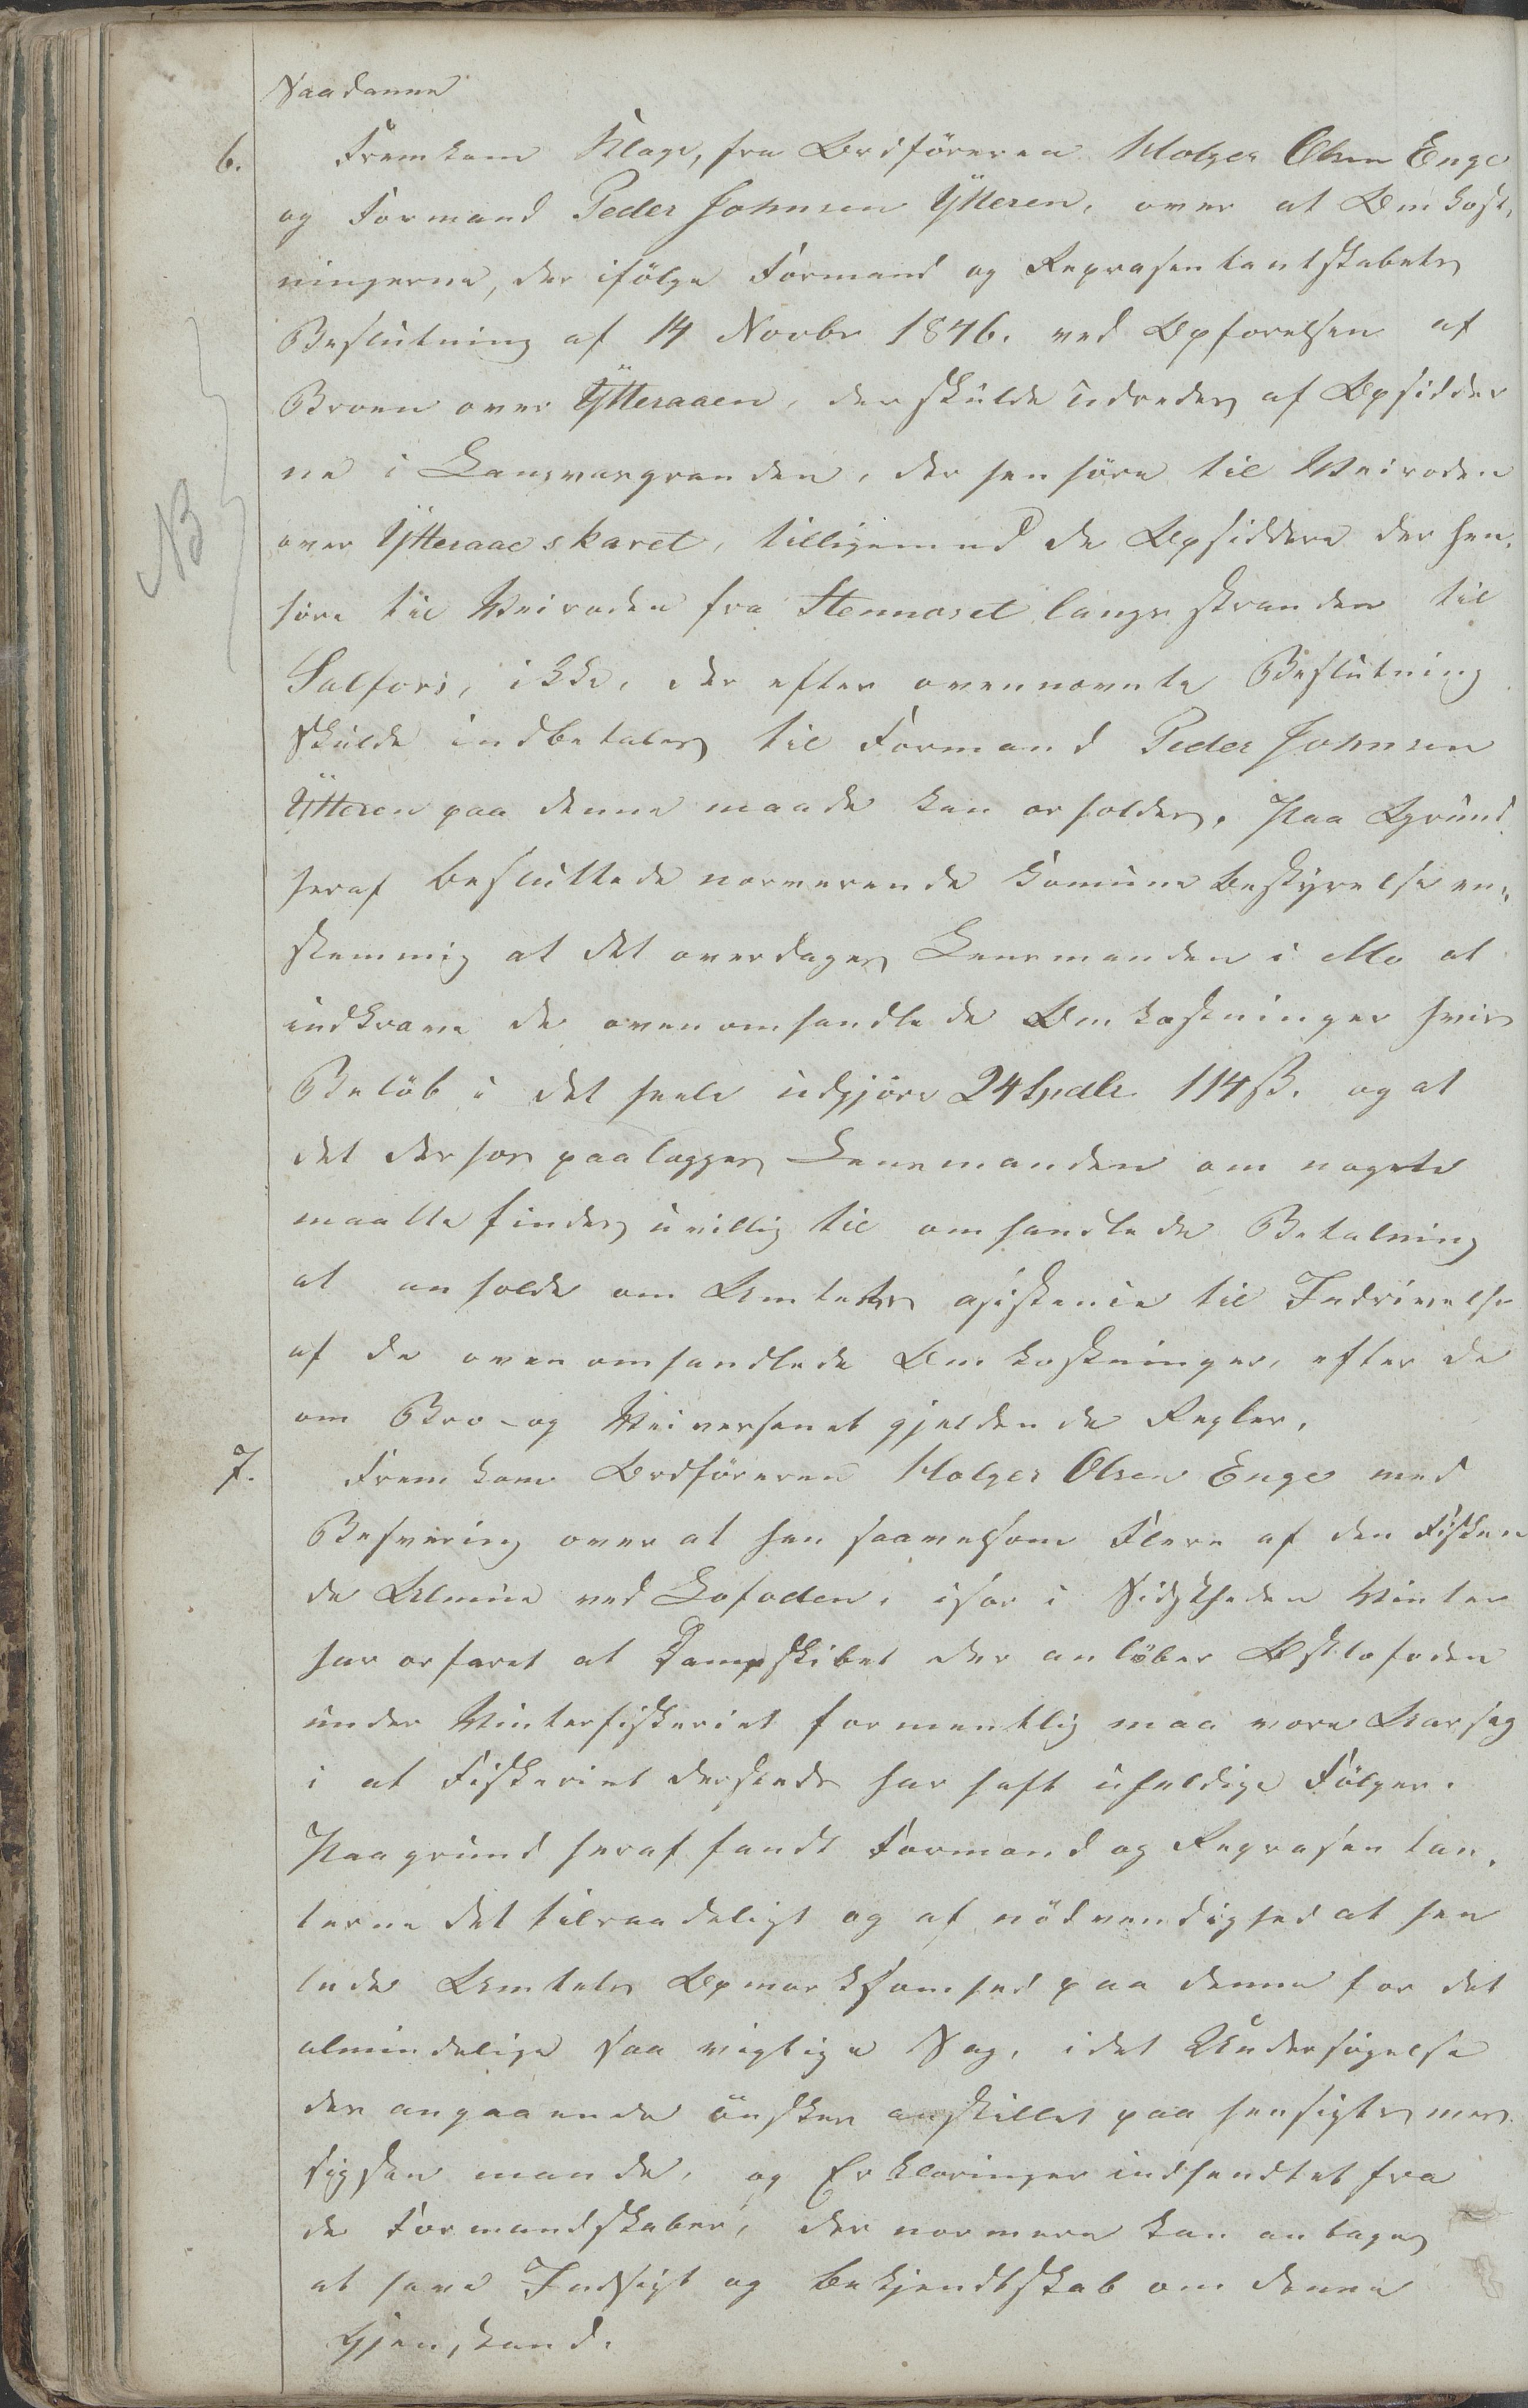 Saadanne
6. Fremkom Klage, fra Ordföreren Holger Olsen Enge
og Formand Peder Johnsen Ytteren, over at Omkost,
ningerne, der ifölge Formand og Repræsentantskabets
Beslutning af 14 Novbr 1846. ved Opförelsen af
Broen over Ytteraaen, der skulde udredes af Opsidder
ne i Langvasgranden, der henhöre til Veiroden
over Ytteraaeskaret, tilligemed de Opsiddere der hen,
höre til Veiroden fra Stennæset langs stranden til
NB
Salfors, ikke, der efter ovennævnte Beslutning
skulde indbetales til Formand Peder Johnsen
Ytteren paa denne maade kan erholdes. Paa Grund
heraf besluttede nærværende Komunebestyrelse en,
stemmig at det overdages Lensmanden i Mo at
indkræve de ovenomhandlede Omkostninger hvis
Belöb i det heele udgjöre 24 Spdlr 114 ß. og at
det derhos paalægges Lensmanden om nogele
maatte findes uvillig til omhandlede Betalning
at anholde om Amtets asistence til Inddrivelse
af de ovenomhandlede Omkostninger, efter de
om Bro- og Veivæsenet gjeldende Regler.
7. Fremkom Ordföreren Holger Olsen Enge med
Besværing over at han saavelsom Flere af den Fisken
de Almue ved Lofoden, især i Sidstheden Vinter
har erfaret at Dampskibet der anlöber Ostlofoden
under Vinterfiskeriet formentlig maa være Aarsag
i at Fiskeriet dersteds har haft uheldige Fölger.
Paa grund heraf fandt Formand og Repræsentan,
terne det tilraadeligt og af nödvendighed at hen
lede Amtets Opmærksomhed paa denne for det
almindelige saa vigtige Sag, idet Undersögelse
der angaaende önskes anstillet paa hensigtsmæs
sigsten maade, og Erklæringer indhendtet fra
de Formandskaber, der nærmere kan antages
at have Indsigt og bekjendtskab om denne
Gjenstand.